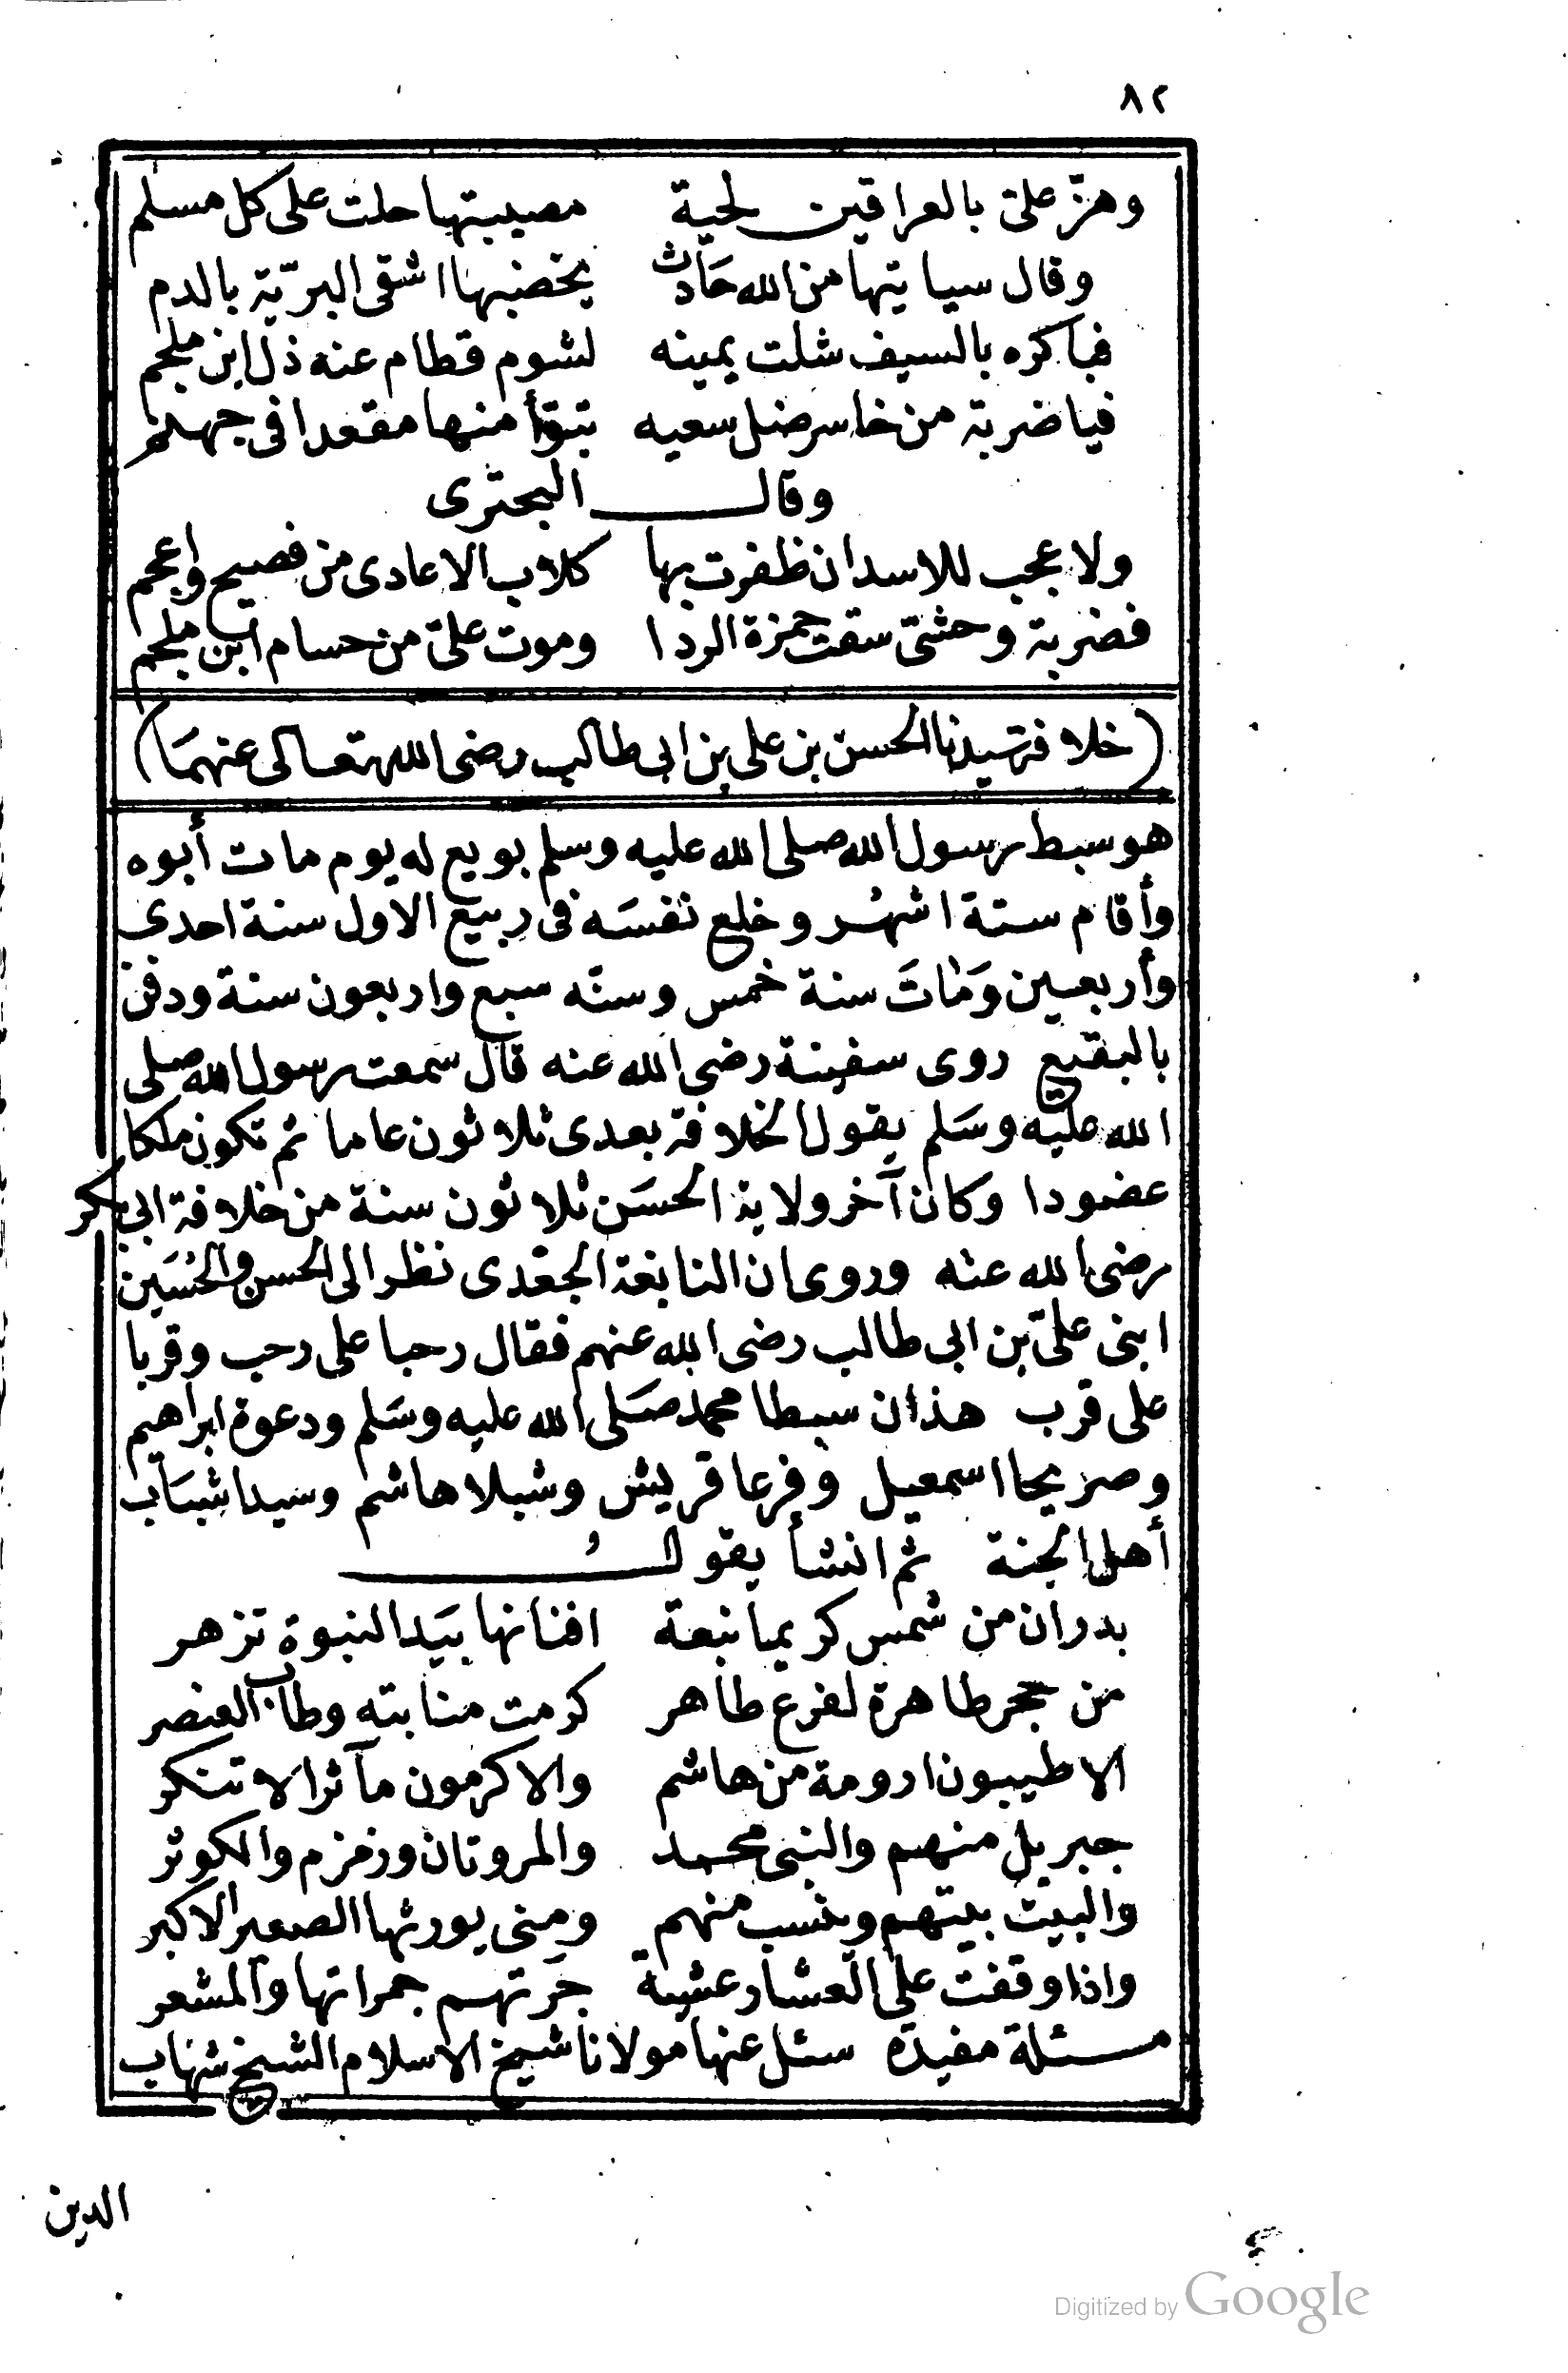 ٨٢
وهز على بالعراقين لحية مصيبتها حلت على كل مسلم
وقال سياتيها من الله حادث يخضبها اشقى البرّية بالدم
فباكره بالسيف شلت يمينه لشوم قطام عنه ذل ابن ملجم
فيا ضربة من خاسر ضل سعيه تبوّأ منها مقعدا فى جهنم
وقال البحترى
ولا عجب للاسد ان ظفرت بها كلاب الاعادى من فصيح واعجم
فضربة وحشىّ سقت حمزة الردا وموت علىّ من حسام ابن ملجم
(خلافة سيدنا الحسن بن على بن ابى طالب رضى الله تعالى عنهمَا)
هو سبط رسول الله صلى الله عليه وسلم بويع له يوم مات أبوه
وأقام ستة اشهُر وخلع نفسَه فى ربيع الاول سنة احدى
وأربعين وَمَاتَ سنة خمس وسنّه سبع واربعون سنة ودفن
بالبقيع روى سفينة رضى الله عنه قال سمعت رسول الله صلى
الله عليه وسَلم يقول الخلافة بعدى ثلاثون عاما ثم تكون ملكا
عضودا وكان آخر ولاية الحسَن ثلاثون سنة من خلافة ابى بكر
رضى الله عنه وروى ان النابغة الجعدى نظر الى الحسن والحُسَين
ابنى علىّ بن ابى طالب رضى الله عنهم فقال رحبا على رحب وقربا
على قرب هذان سبطا محمد صَلى الله عليه وسَلم ودعوة ابراهيم
وصريحا اسمعيل وفرعا قريش وشبلا هاشم وسيدا شبَاب
أهل الجنة ثم انشأ يقولُ
بدران من شمس كريما نبعة افنانها بيَد النبوة تزهر
من حجر طاهرة لفرع طاهر كرمت منابته وطاب العنصر
الاطيبون ارومة من هاشم والاكرمون مآثرا لا تنكر
جبريل منهم والنبى محمد والمروتان وزمزم والكوثر
والبيت بيتهم وينسب منهم ومنى يورثها الصغير الاكبر
واذا وقفت على العشار عشية جرتهم جمراتها والمشعر
مسئلة مفيدة سئل عنها مولانا شيخ الاسلام الشيخ شهاب
الدين
Digitized by Google